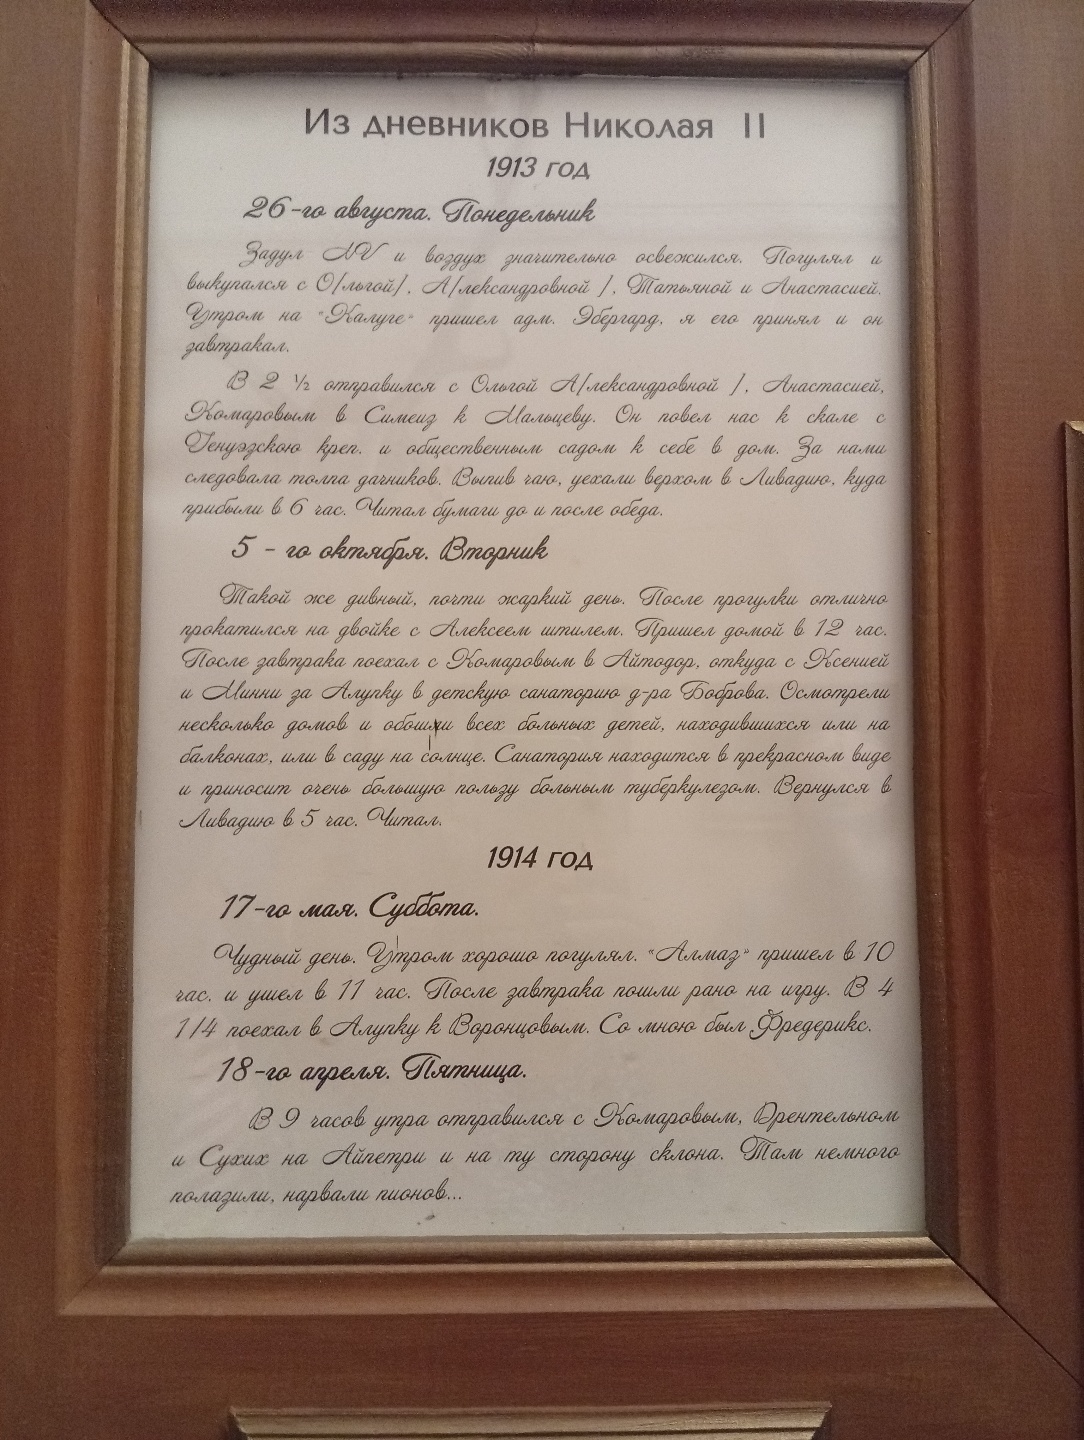 Из дневников Николая II
1913 год
26-го августа. Понедельник
Задул NV и воздух значительно освежился. Погулял и
выкупался с О[льгой], А[лександровной ], Татьяной и Анастасией.
Утром на "Калуге" пришел адм. Эбергард, я его принял и он
завтракал.
В 2 ½ отправился с Ольгой А[лександровной ], Анастасией,
Комаровым в Симеиз к Мальцеву. Он повел нас к скале с
Генуэзскою креп. и общественным садом к себе в дом. За нами
следовала толпа дачников. Выпив чаю, уехали верхом в Ливадию, куда
прибыли в 6 час. Читал бумаги до и после обеда.
5 - го октября. Вторник
Такой же дивный, почти жаркий день. После прогулки отлично
прокатился на двойке с Алексеем штилем. Пришел домой в 12 час.
После завтрака поехал с Комаровым в Айтодор, откуда с Ксенией
и Минни за Алупку в детскую санаторию д-ра Боброва. Осмотрели
несколько домов и обошли всех больных детей, находившихся или на
балконах, или в саду на солнце. Санатория находится в прекрасном виде
и приносит очень большую пользу больным туберкулезом. Вернулся в
Ливадию в 5 час. Читал.
1914 год
17-го мая. Суббота.
Чудный день. Утром хорошо погулял. "Алмаз" пришел в 10
час. и ушел в 11 час. После завтрака пошли рано на игру. В 4
1/4 поехал в Алупку к Воронцовым. Со мною был Фредерикс.
18-го апреля. Пятница.
В 9 часов утра отправился с Комаровым, Дрентельном
и Сухих на Айпетри и на ту сторону склона. Там немного
полазили, нарвали пионов...